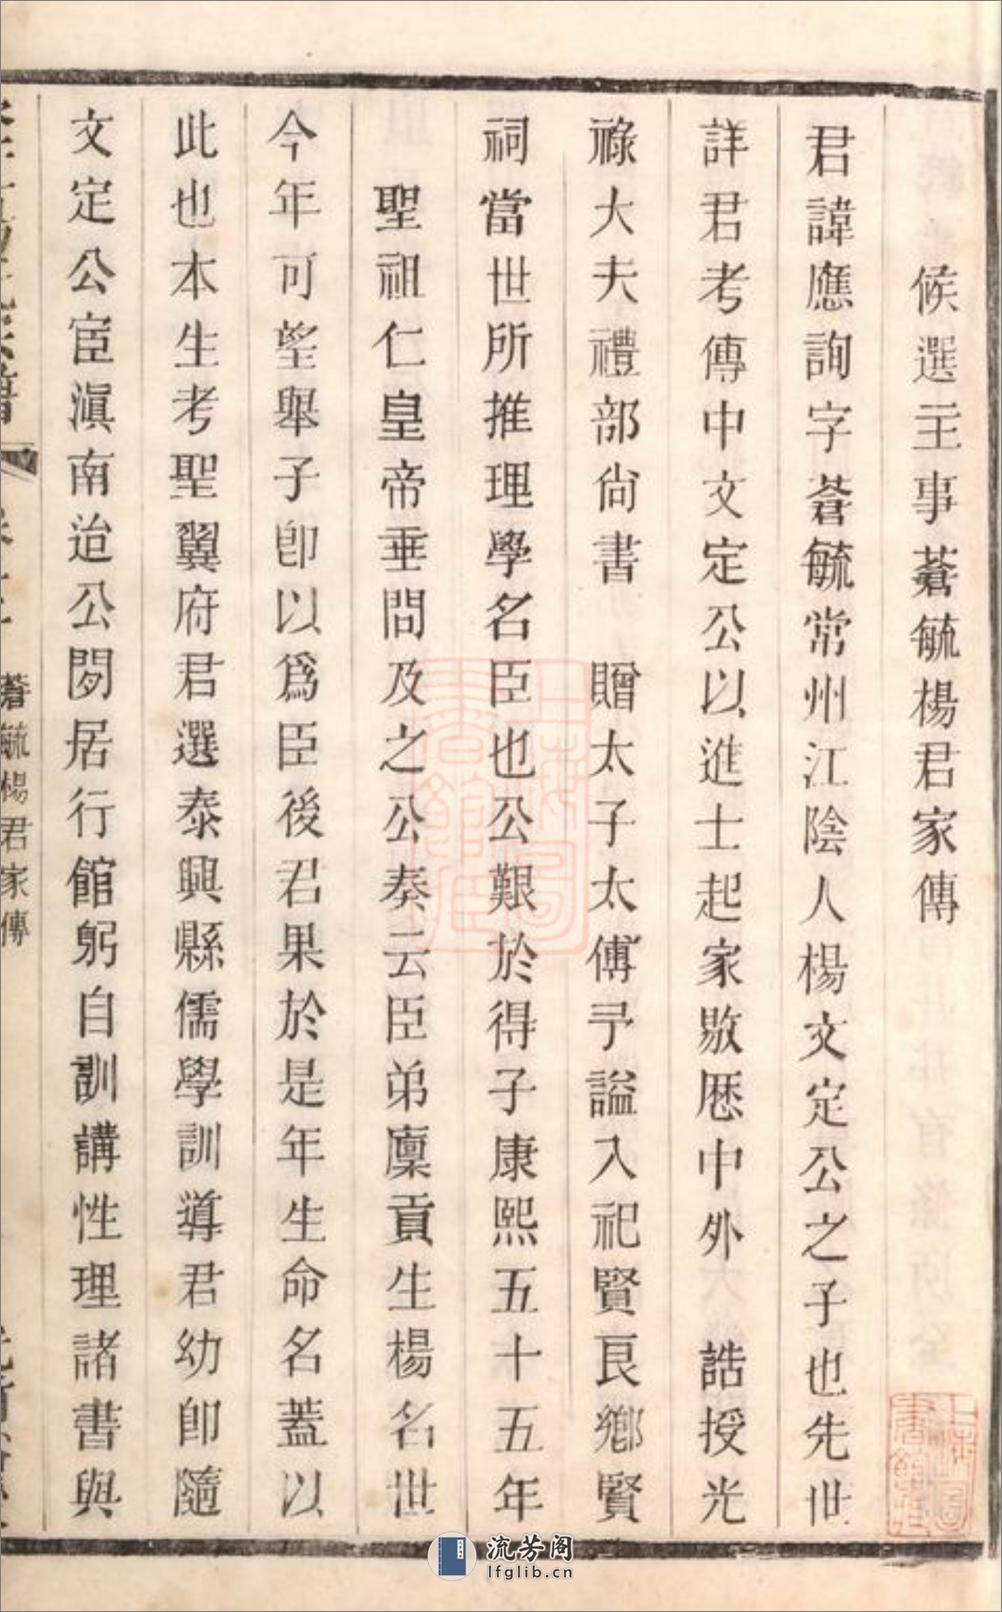 候選主事蒼毓楊君家傳
君諱應詢字蒼毓常州江陰人楊文定公之子也先世
詳君考傳中文定公以進士起家敭歷中外　誥授光
祿大夫禮部尚書　贈太子太傅予謚入祀賢良鄉賢
祠當世所推理學名臣也公艱於得子康熙五十五年
聖祖仁皇帝垂問及之公奏云臣弟廩貢生楊名世
今年可望舉子卽以爲臣後君果於是年生命名蓋以
此也本生考聖翼府君選泰興縣儒學訓導君幼卽隨
文定公宦滇南迨公閒居行館躬自訓講性理諸書與
蒼毓楊君家傳
上海圖書館藏
上海圖書館藏
流芳阁
lfglib.cn